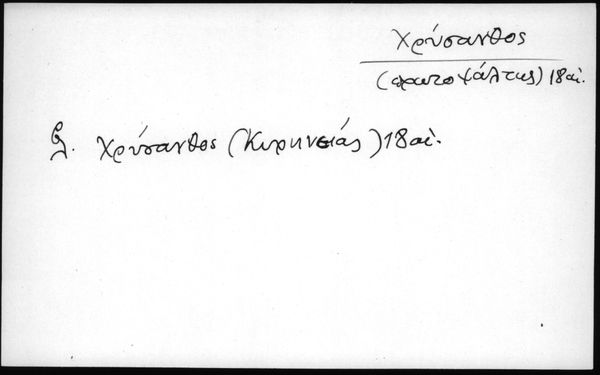 Χρύσανθος
(πρωτοψάλτης) 18 αἰ.
βλ. Χρύσανθος (Κυρηνείας) 18 αἰ.